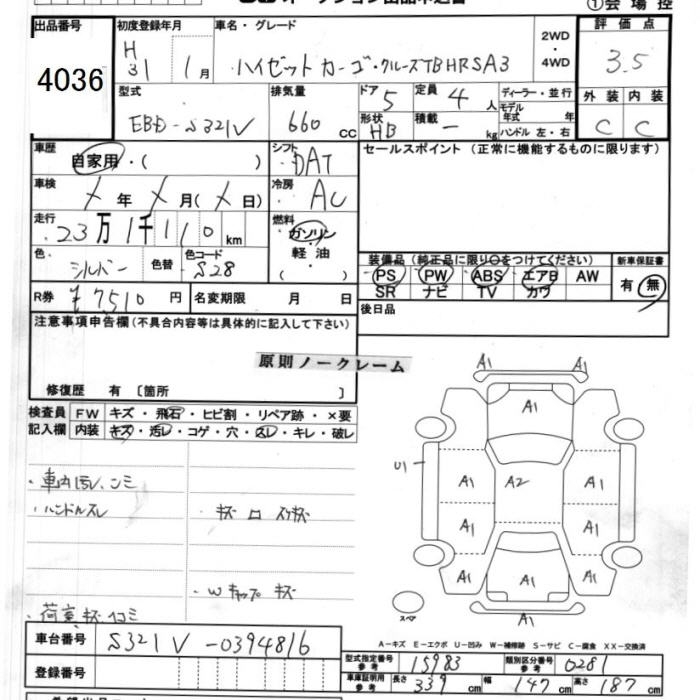 ①会場控
出品番号 初度登録年月 車名・グレード 2WD・4WD 評価点
4036 H31 1月 ハイゼットカーゴ・クルーズTBHRSA3 3.5
型式 排気量 ドア 5 定員 4人 ディーラー・並行 外装 内装
EBD-S321V 660cc 形状 HB 積載 - kg モデル年式 年 ハンドル 左・右 C C
車歴 自家用・( ) シフト DAT セールスポイント (正常に機能するものに限ります)
車検 X年 X月(X日) 冷房 AC
走行 23万1千110km 燃料 ガソリン・軽油・( )
色 シルバー 色替 色コード S28
装備品 (純正品に限り○をつけてください) 新車保証書
PS PW ABS エアB AW 有・無
SR ナビ TV カワ
R券 ¥7510円 名変期限 月 日 後日品
注意事項申告欄(不具合内容等は具体的に記入して下さい)
原則ノークレーム
修復歴 有 〔箇所 〕
検査員 FW キズ・飛石・ヒビ割・リペア跡・×要
記入欄 内装 キズ・汚レ・コゲ・穴・スレ・キレ・破レ
・車内汚レ、ゴミ
・ハンドルスレ
・Wキャップ キズ
・荷室キズ凹ミ
A1 A1
A1
U1 A1 A2 A1
A1 A1
A1 A1 A1
スペア
A-キズ E-エクボ U-凹み W-補修跡 S-サビ C-腐食 XX-交換済
車台番号 S321V-0394816
登録番号
型式指定番号 参考 15983 類別区分番号 参考 0281
車庫証明用 参考 長さ 339cm 幅 147cm 高さ 187cm